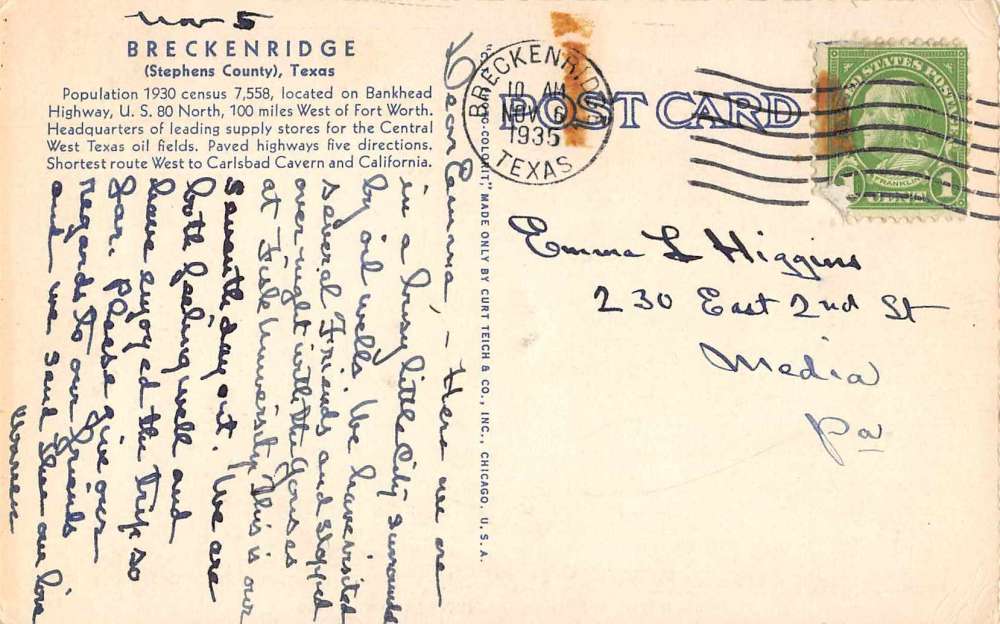 Nov 5
BRECKENRIDGE
(Stephens County), Texas
Population 1930 census 7,558, located on Bankhead
Highway, U. S. 80 North, 100 miles West of Fort Worth.
Headquarters of leading supply stores for the Central
West Texas oil fields. Paved highways five directions.
Shortest route West to Carlsbad Cavern and California.
Dear Emma, - Here we are
in a busy little city surrounded
by oil wells. We have visited
several Friends and stopped
over night with the Joneses
at Fisk University. This is our
seventh day out. We are
both feeling well and
have enjoyed the trip so
far. Please give our
regards to our friends
and we send you our love
"C.T. PHOTO-COLORIT," MADE ONLY BY CURT TEICH & CO., INC., CHICAGO, U. S. A.
POST CARD
BRECKENRIDGE
10 AM
NOV 6
1935
TEXAS
UNITED STATES POSTAGE
FRANKLIN
1
Emma L Higgins
230 East 2nd St
Media
Pa